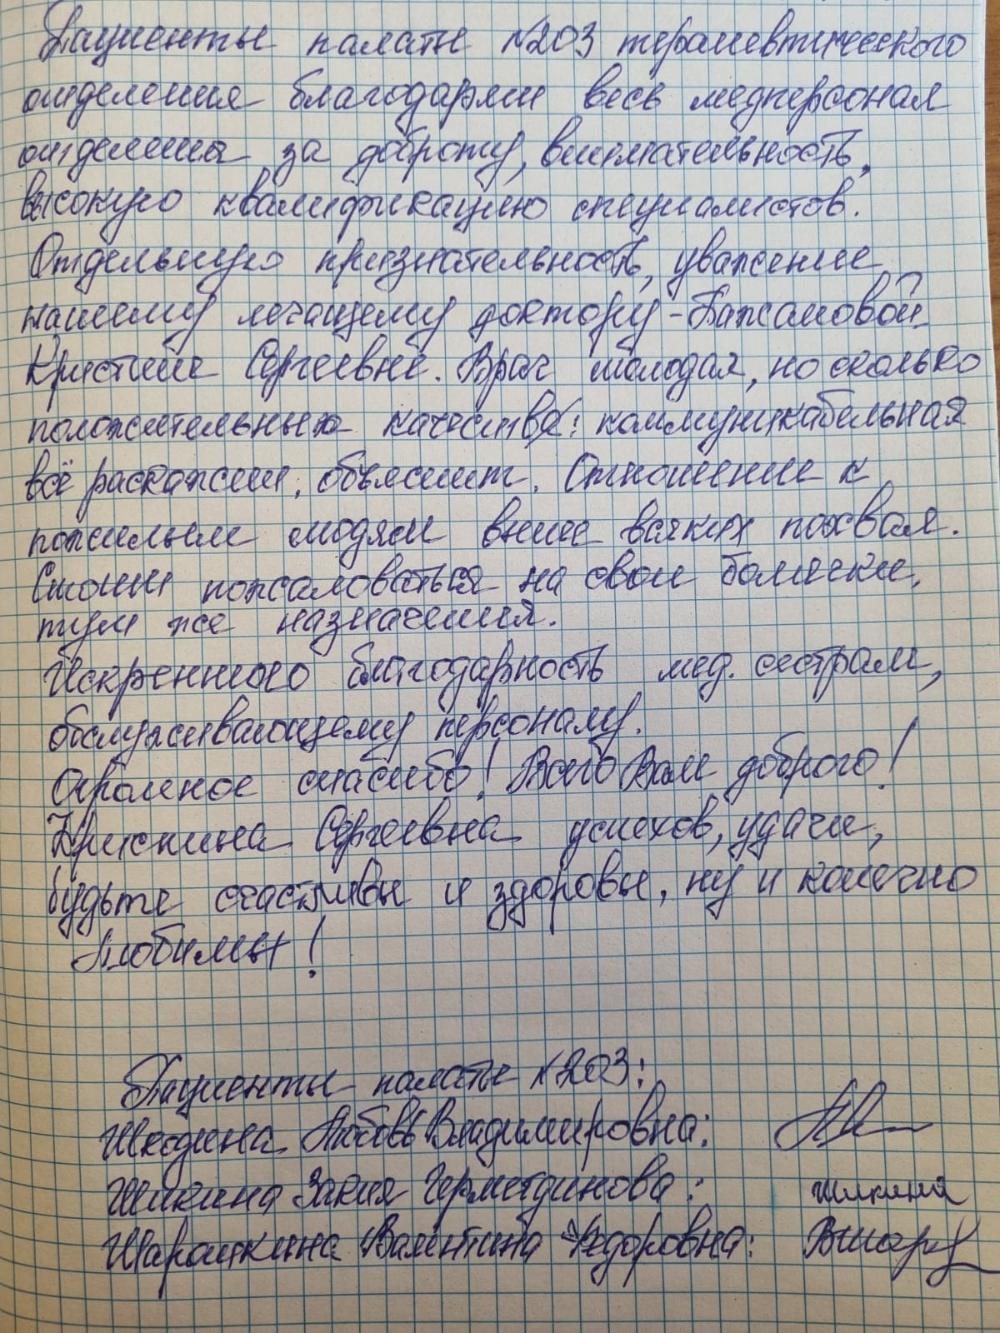 Пациенты палаты №203 терапевтического
отделения благодарят весь медперсонал
отделения за доброту, внимательность,
высокую квалификацию специалистов.
Отдельную признательность, уважение
нашему лечащему доктору -
Кристине Сергеевне. Врач молодая, но сколько
положительных качеств: коммуникабельная
всё расскажет, объяснит. Отношение к
пожилым людям выше всяких похвал.
Стоит пожаловаться на свои болячки,
тут же назначения.
Искреннюю благодарность мед. сестрам,
обслуживающему персоналу.
Огромное спасибо! Всего Вам доброго!
Кристина Сергеевна успехов, удачи,
будьте счастливы и здоровы, ну и конечно
любимы!
Пациенты палаты №203:
Любовь Владимировна:
Шикина Закия : Шикина
Валентина Федоровна: